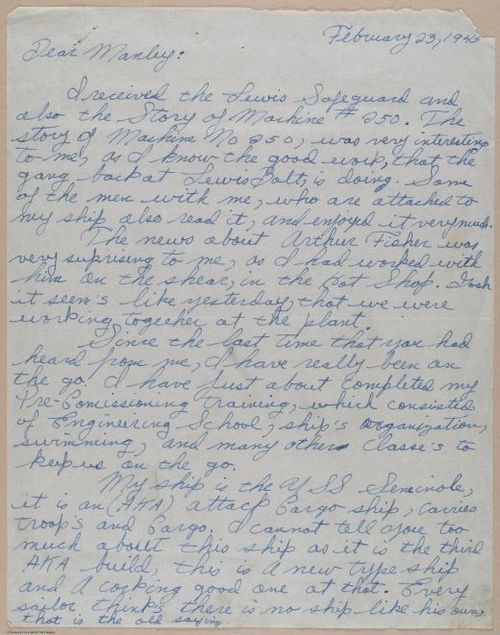 February 23, 1945
Dear Manley:
I received the Lewis Safeguard and
also the Story of Machine # 250. The
story of Machine No 250, was very interesting
to me, as I know the good work, that the
gang back at Lewis Bolt, is doing. Some
of the men with me, who are attached to
my ship also read it, and enjoyed it very much.
The news about Arthur Fisher was
very suprising to me, as I had worked with
him on the shear, in the Hot Shop. Gosh
it seem's like yesterday, that we were
working together at the plant.
Since the last time that you had
heard from me, I have really been on
the go. I have just about completed my
Pre-Comissioning training, which consisted
of Engineering School, ship's organization,
swimming, and many other classe's to
keep us on the go.
My ship is the U.S.S. Seminole,
it is an (AKA) attack Cargo ship, carries
troop's and Cargo. I cannot tell you too
much about this ship as it is the third
AKA build, this is a new type ship
and a corking good one at that. Every
sailor think's there is no ship like his own,
that is the old saying